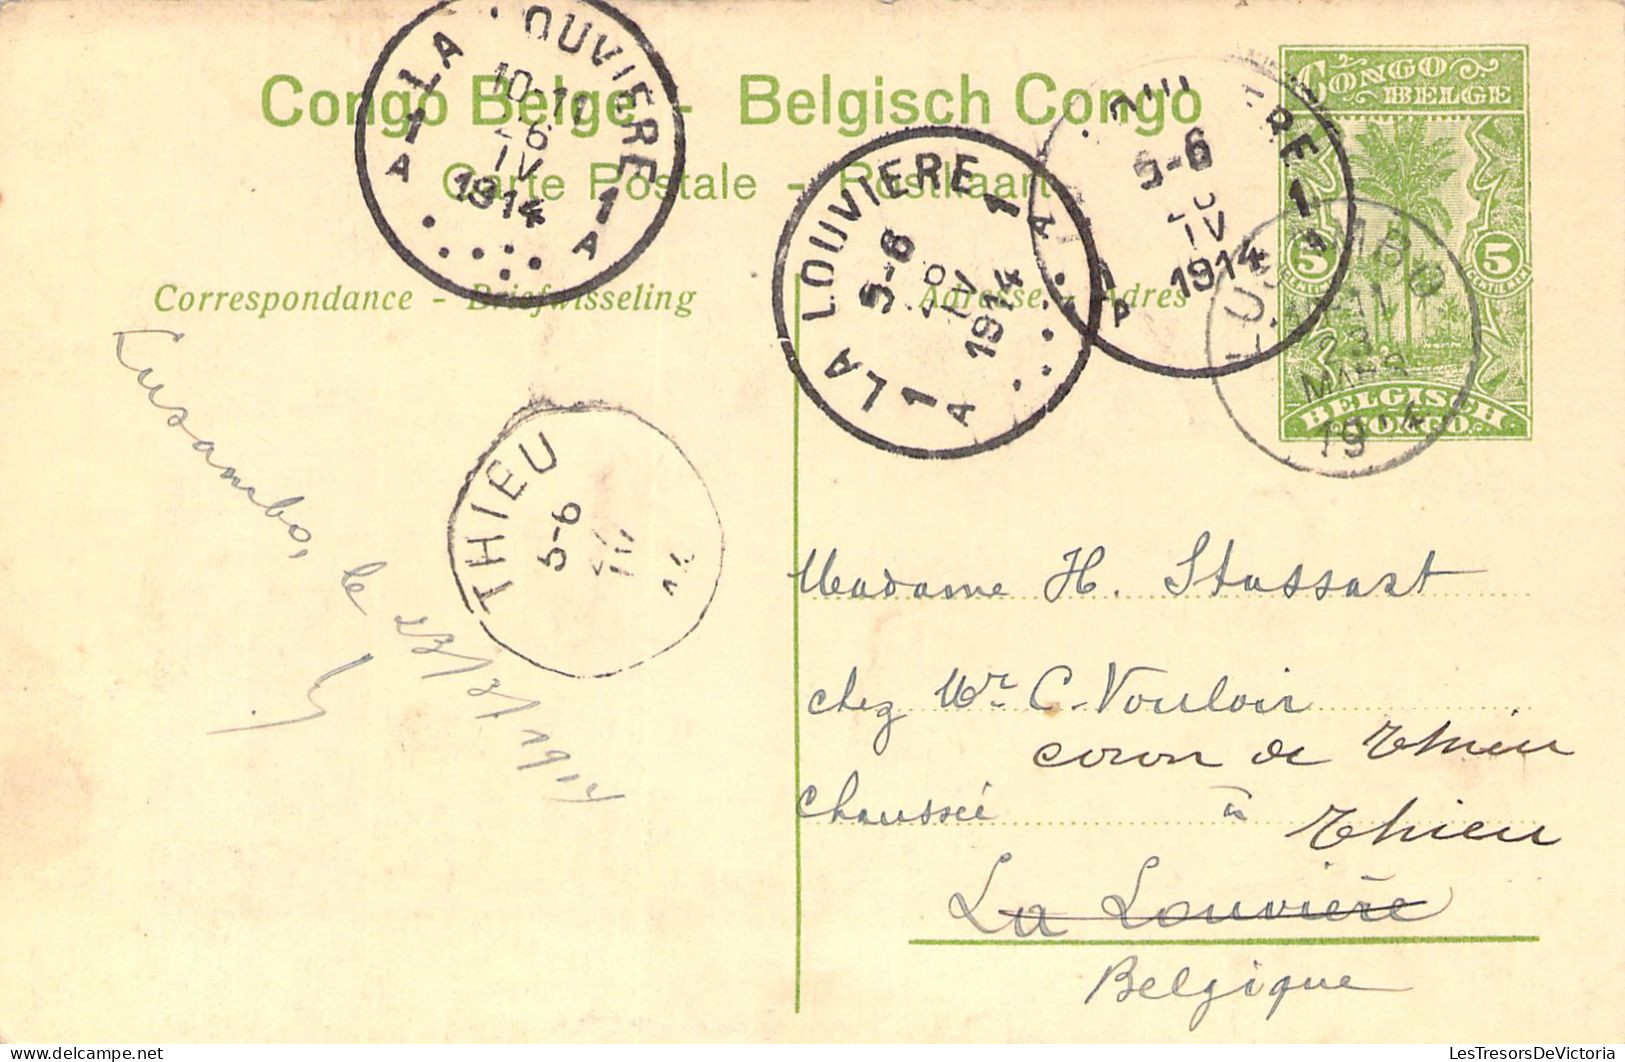 Congo Belge - Belgisch Congo
Carte Postale - Postkaart
Correspondance - Briefwisseling
Adresse - Adres
CONGO
BELGE
5 5
BELGISCH
CONGO
LA LOUVIERE
1 1
A A
10-11
6
IV
1914
LA LOUVIERE
1 1
A A
5-6
IV
1914
5-6
IV
1914
1
A
LUSAMBO
23
MARS
1914
THIEU
5-6
Lusambo, le 23/3/1914
Madame H. Stassart
chez Mr C. Vouloir
coron de Thieu
Chaussée à Thieu
La Louvière
Belgique
LesTresorsDeVictoria